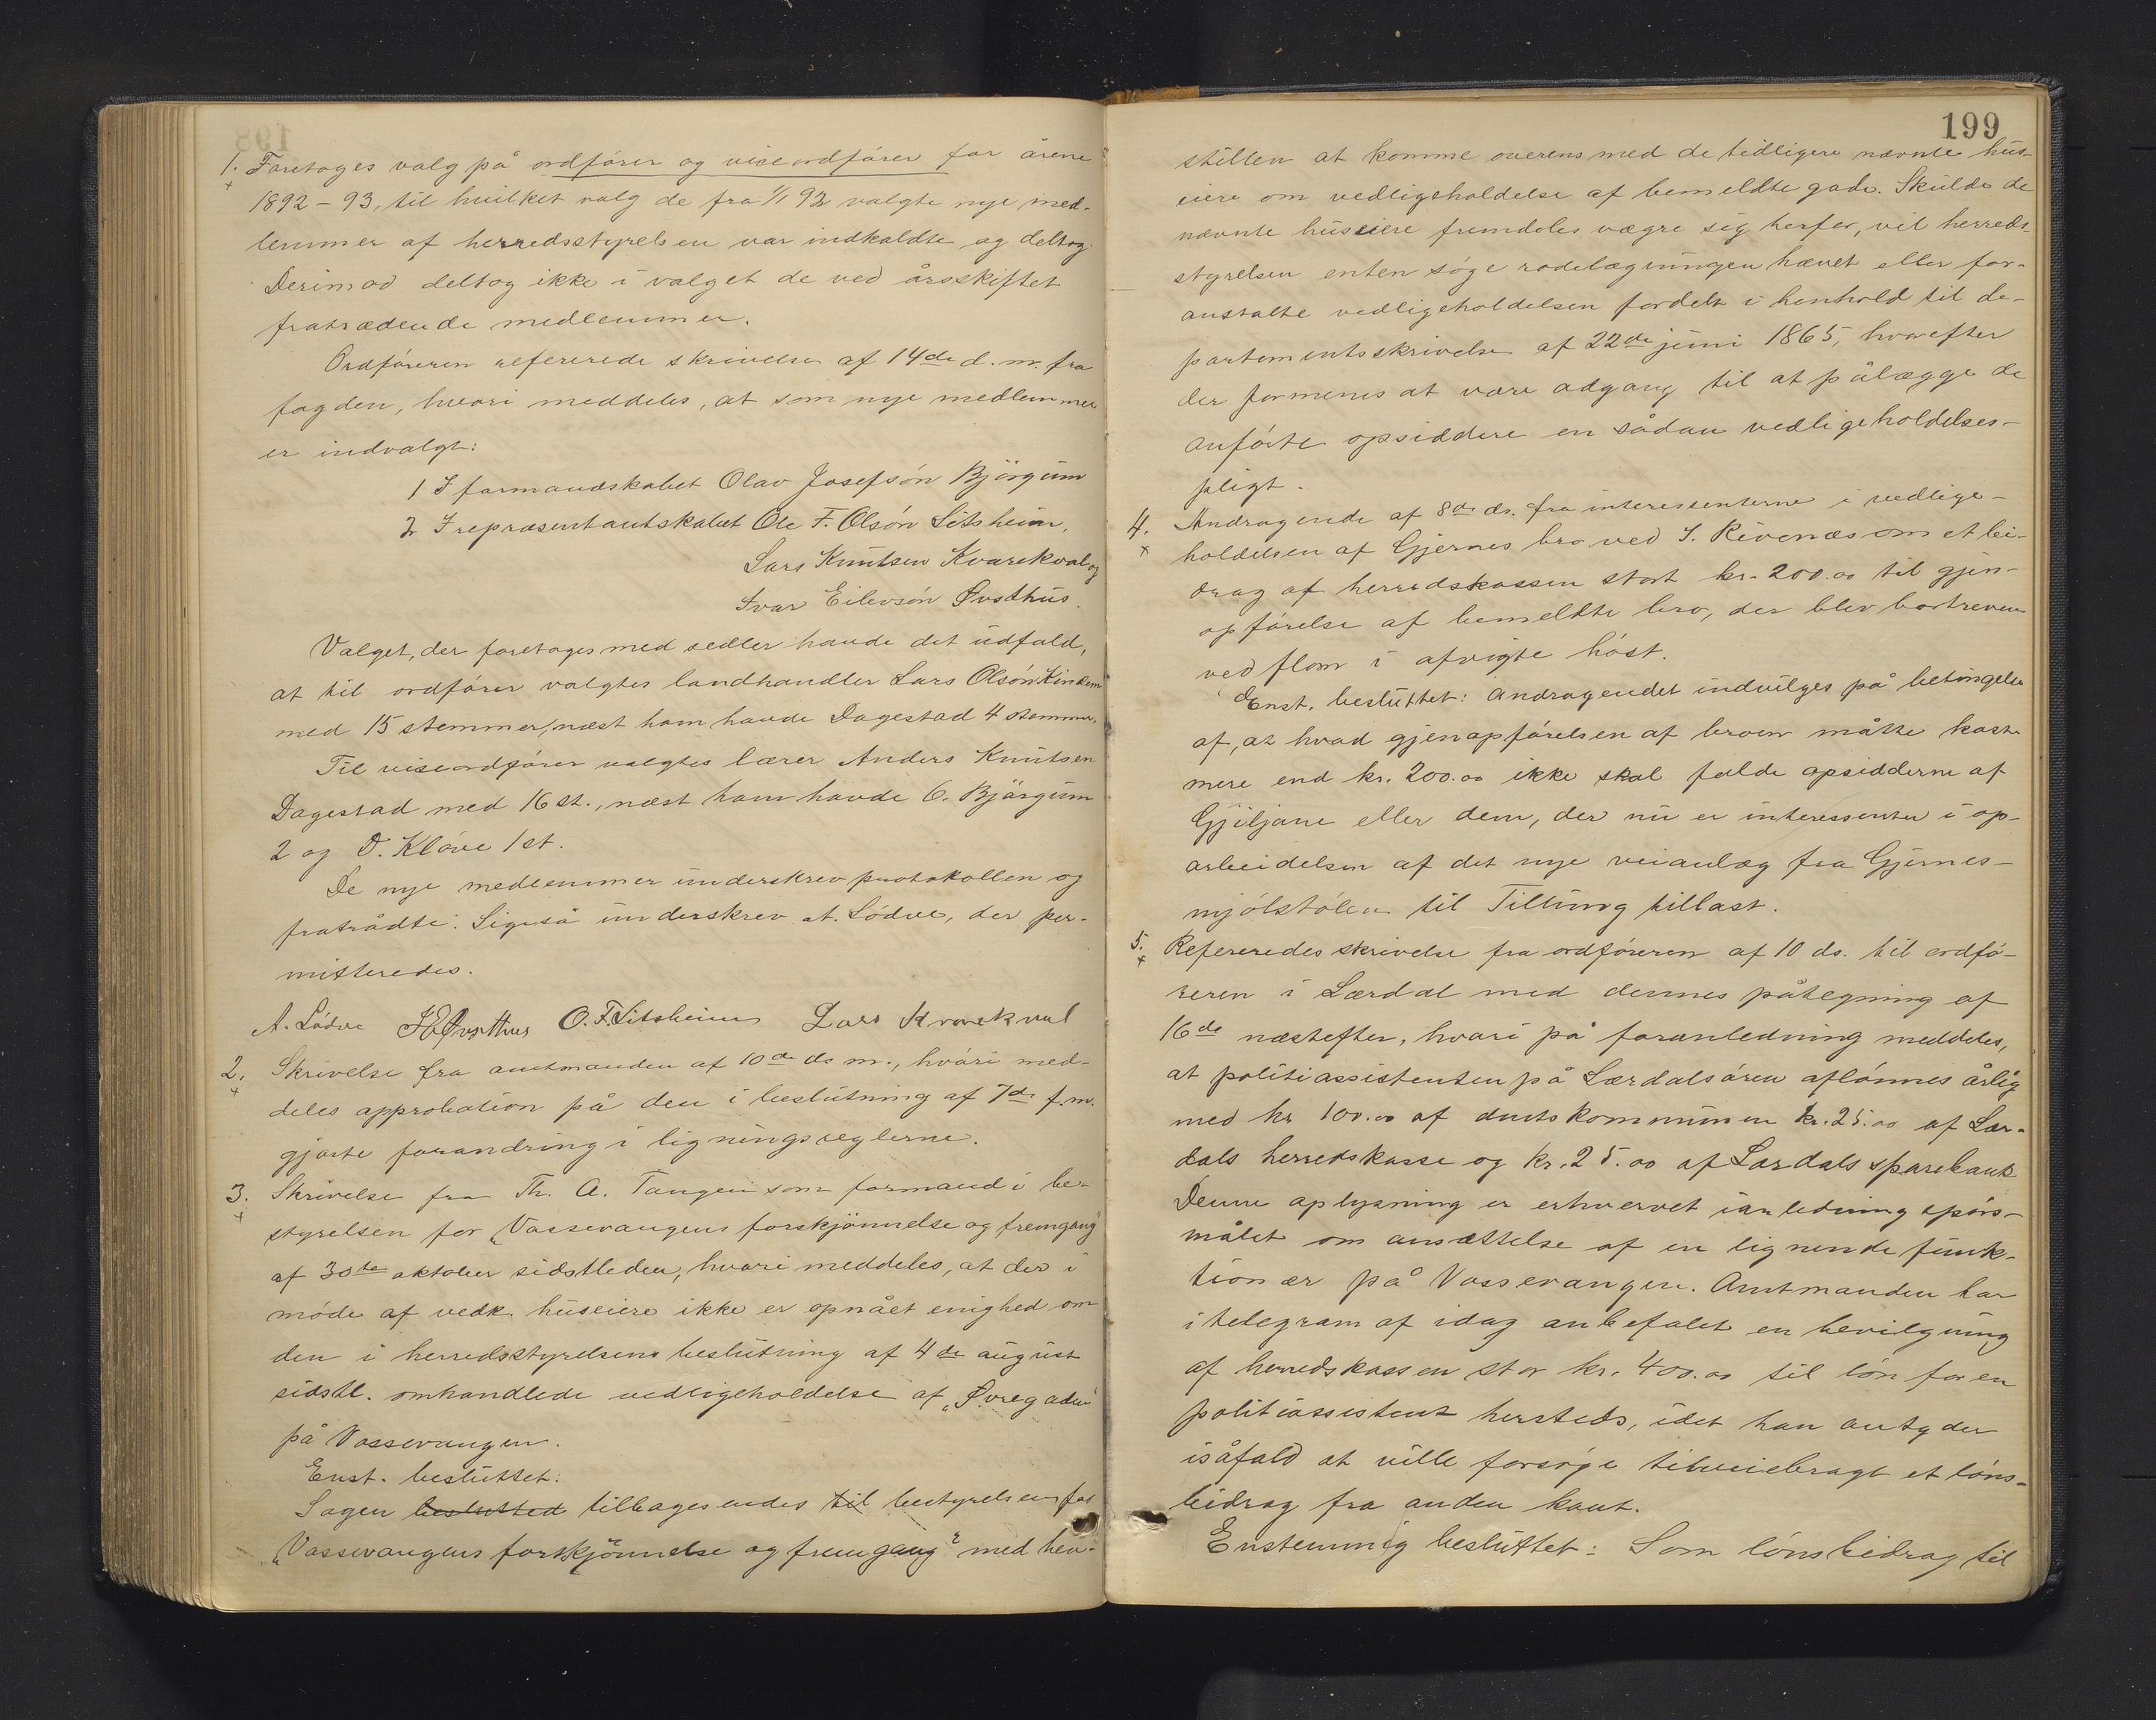 1. Foretoges valg på ordfører og viceordfører for årene
1892-93, til hvilket valg de fra 1/1 92 valgte nye med-
lemmer af herredsstyrelsen var indkaldte og deltog.
Derimod deltog ikke i valget de ved årsskiftet
fratrædende medlemmer.
Ordføreren refererede skrivelse af 14de d. m. fra
fogden, hvori meddeles, at som nye medlemmer
er indvalgt:
1 I formandskabet Olav Josefsón Bjørgum
2 I repræsentantskabet Ole F. Olsón Litsheim,
Lars Knutsen Kvarekval og
Ivar Eilevsón Øvsthus.
Valget, der foretoges med sedler havde det udfald,
at til ordfører valgtes landhandler Lars Olsón Kinden
med 15 stemmer, næst ham havde Dagestad 4 stemmer,
Til viseordfører valgtes lærer Anders Knutsen
Dagestad med 16 st., næst ham havde O. Bjørgum
2 og D. Kløve 1 st.
De nye medlemmer underskrev protokollen og
fratrådte. Ligeså underskrev A. Lødve, der per-
mitteredes.
A. Lødve I E Øvsthus O. F. Litsheim Lars Kvarekval
2. Skrivelse fra amtmanden af 10de ds m., hvori med-
deles approbation på den i beslutning af 7de f. m.
gjorte forandring i ligningsreglerne.
3. Skrivelse fra Th. A. Tangen som formand i be-
styrelsen for „Vossevangens forskjønnelse og fremgang"
af 30te oktober sidstleden, hvori meddeles, at der i
møde af vedk. huseiere ikke er opnået enighed om
den i herredsstyrelsens beslutning af 4de august
sidstl. omhandlede vedligeholdelse af „Øvregaden"
på Vossevangen.
Enst. besluttet:
Sagen beslutted tilbagesendes til bestyrelsen for
„Vossevangens forskjønnelse og fremgang" med hen-
199
stillen at komme overens med de tidligere nævnte hus-
eiere om vedligeholdelse af bemeldte gade. Skulde de
nævnte huseiere fremdeles vægre sig herfor, vil herreds-
styrelsen enten søge rodelægningen hævet eller for-
anstalte vedligeholdelsen fordelt i henhold til de-
partementsskrivelse af 22de juni 1865, hvorefter
der formenes at være adgang til at pålægge de
anførte opsiddere en sådan vedligeholdelses-
pligt.
4. Andragende af 8de ds. fra interessenterne i vedlige-
holdelsen af Gjernes bro ved I. Rivenæs om et bi-
drag af herredskassen stort kr. 200.00 til gjen-
opførelse af bemeldte bro, der blev bortreven
ved flom i afvigte høst.
Enst. besluttet: Andragendet indvilges på betingelse
af, at hvad gjenopførelsen af broen måtte koste
mere end kr. 200.00 ikke skal falde opsidderne af
Gjiljane eller dem, der nu er interessenter i op-
arbeidelsen af det nye veianlæg fra Gjernes-
mjølstølen til Tillung tillast.
5. Refereredes skrivelse fra ordføreren af 10 ds. til ordfø-
reren i Lærdal med dennes påtegning af
16de næstefter, hvori på foranledning meddeles,
at politiassistenten på Lærdalsøren aflønnes årlig
med kr 100.00 af amtskommunen kr. 25.00 af Lær-
dals herredskasse og kr. 25.00 af Lærdals sparebank
Denne oplysning er erhvervet i anledning spørs-
målet om ansættelse af en lignende funk-
tionær på Vossevangen. Amtmanden har
i telegram af idag anbefalet en bevilgning
af herredskassen stor kr. 400.00 til løn for en
politiassistent hersteds, idet han antyder
isåfald at ville forsøge tilveiebragt et løns-
bidrag fra anden kant.
Enstemmig besluttet: Som lønsbidrag til